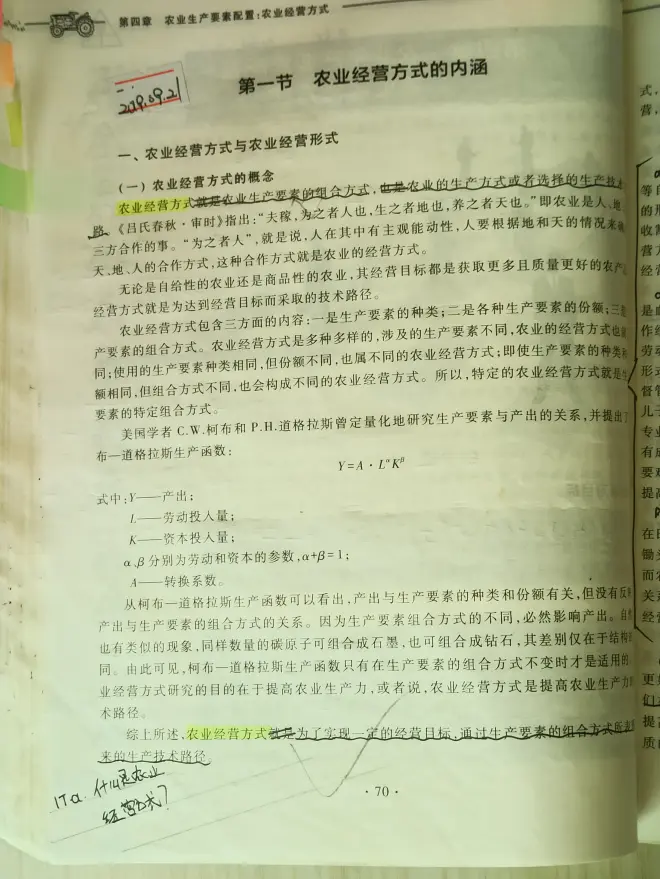 第四章 农业生产要素配置:农业经营方式
第一节 农业经营方式的内涵
2019.09.21
一、农业经营方式与农业经营形式
(一)农业经营方式的概念
农业经营方式就是农业生产要素的组合方式,也是农业的生产方式或者选择的生产技术
路。《吕氏春秋·审时》指出:“夫稼,为之者人也,生之者地也,养之者天也。”即农业是人、地、
三方合作的事。“为之者人”,就是说,人在其中有主观能动性,人要根据地和天的情况来
天、地、人的合作方式,这种合作方式就是农业的经营方式。
无论是自给性的农业还是商品性的农业,其经营目标都是获取更多且质量更好的农产
经营方式就是为达到经营目标而采取的技术路径。
农业经营方式包含三方面的内容:一是生产要素的种类;二是各种生产要素的份额;三是
产要素的组合方式。农业经营方式是多种多样的,涉及的生产要素不同,农业的经营方式也
同;使用的生产要素种类相同,但份额不同,也属不同的农业经营方式;即使生产要素的种类和
额相同,但组合方式不同,也会构成不同的农业经营方式。所以,特定的农业经营方式就是
要素的特定组合方式。
美国学者 C.W.柯布和 P.H.道格拉斯曾定量化地研究生产要素与产出的关系,并提出了
布—道格拉斯生产函数:
Y=A·LᵅKᵝ
式中:Y——产出;
L——劳动投入量;
K——资本投入量;
α、β分别为劳动和资本的参数,α+β=1;
A——转换系数。
从柯布—道格拉斯生产函数可以看出,产出与生产要素的种类和份额有关,但没有反
产出与生产要素的组合方式的关系。因为生产要素组合方式的不同,必然影响产出。自
也有类似的现象,同样数量的碳原子可组合成石墨,也可组合成钻石,其差别仅在于结构
同。由此可见,柯布—道格拉斯生产函数只有在生产要素的组合方式不变时才是适用的
业经营方式研究的目的在于提高农业生产力,或者说,农业经营方式是提高农业生产力
术路径。
综上所述,农业经营方式就是为了实现一定的经营目标,通过生产要素的组合方式所
来的生产技术路径。
什么是农业
经营方式?
·70·
式,
营,
等
的
收
营方
经营
是
作
劳动
形式
督
儿子
专业
有
要
提高
在
锄
而
关
经营
更
们
提
质